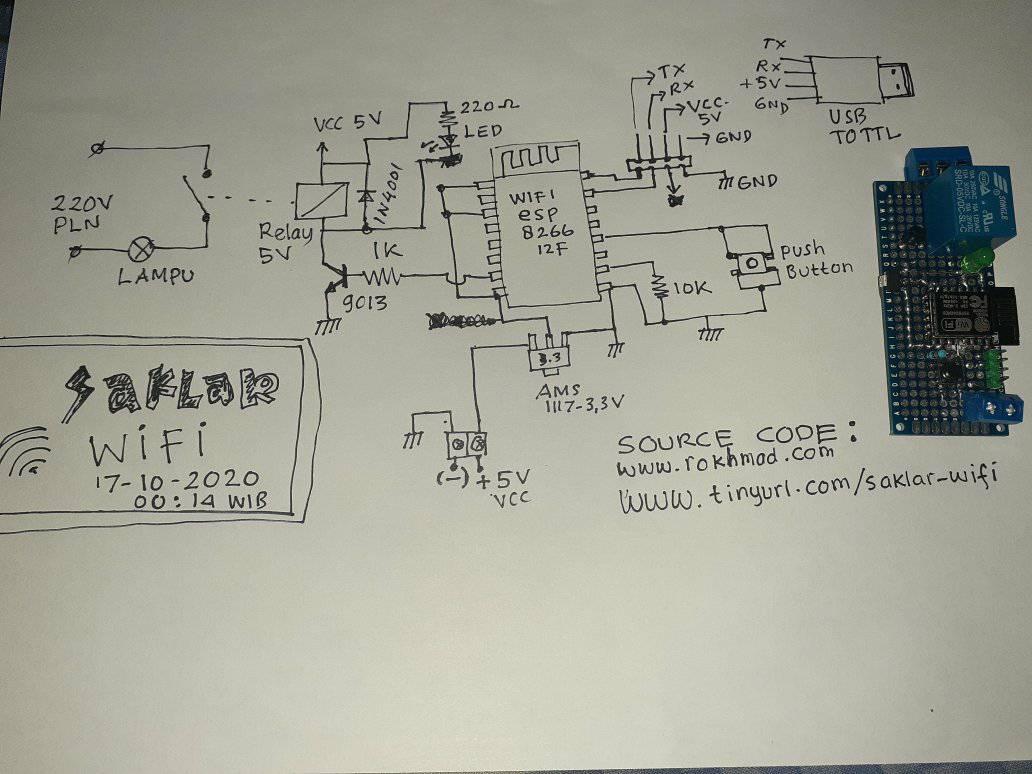 TX
RX
+5V
GND
USB
TO TTL
TX
RX
VCC-
5V
GND
GND
VCC 5V
220Ω
LED
1N4001
220V
PLN
LAMPU
Relay
5V
1K
9013
WIFI
esp
8266
12F
push
Button
10K
3.3
AMS
1117-3,3V
(-) +5V
VCC
SAKLAR
WiFi
17-10-2020
00:14 WIB
SOURCE CODE:
www.rokhmad.com
WWW.tinyurl.com/saklar-wifi
SONGLE
SRD-05VDC-SL-C
WiFi